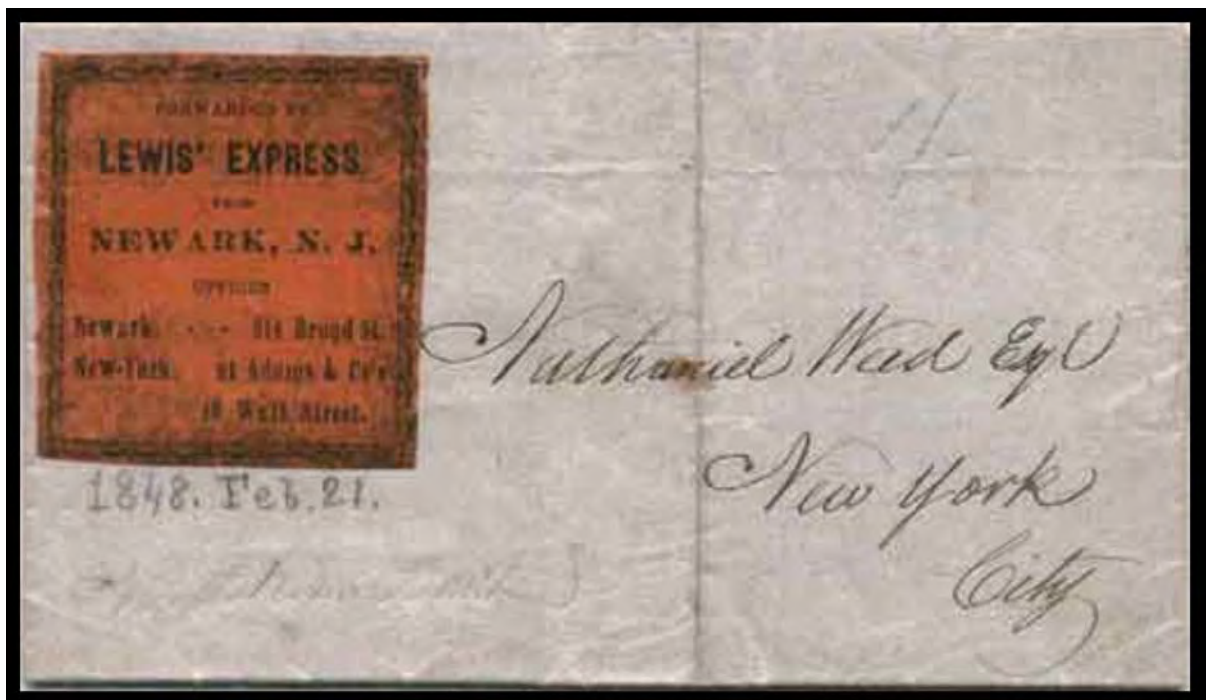 FORWARDED BY
LEWIS' EXPRESS
FROM
NEWARK, N. J.
OFFICES
Newark: Broad St.
New-York: at Adams & Co's
16 Wall Street.
1848. Feb. 21.
Nathaniel Weed Esq
New York
City